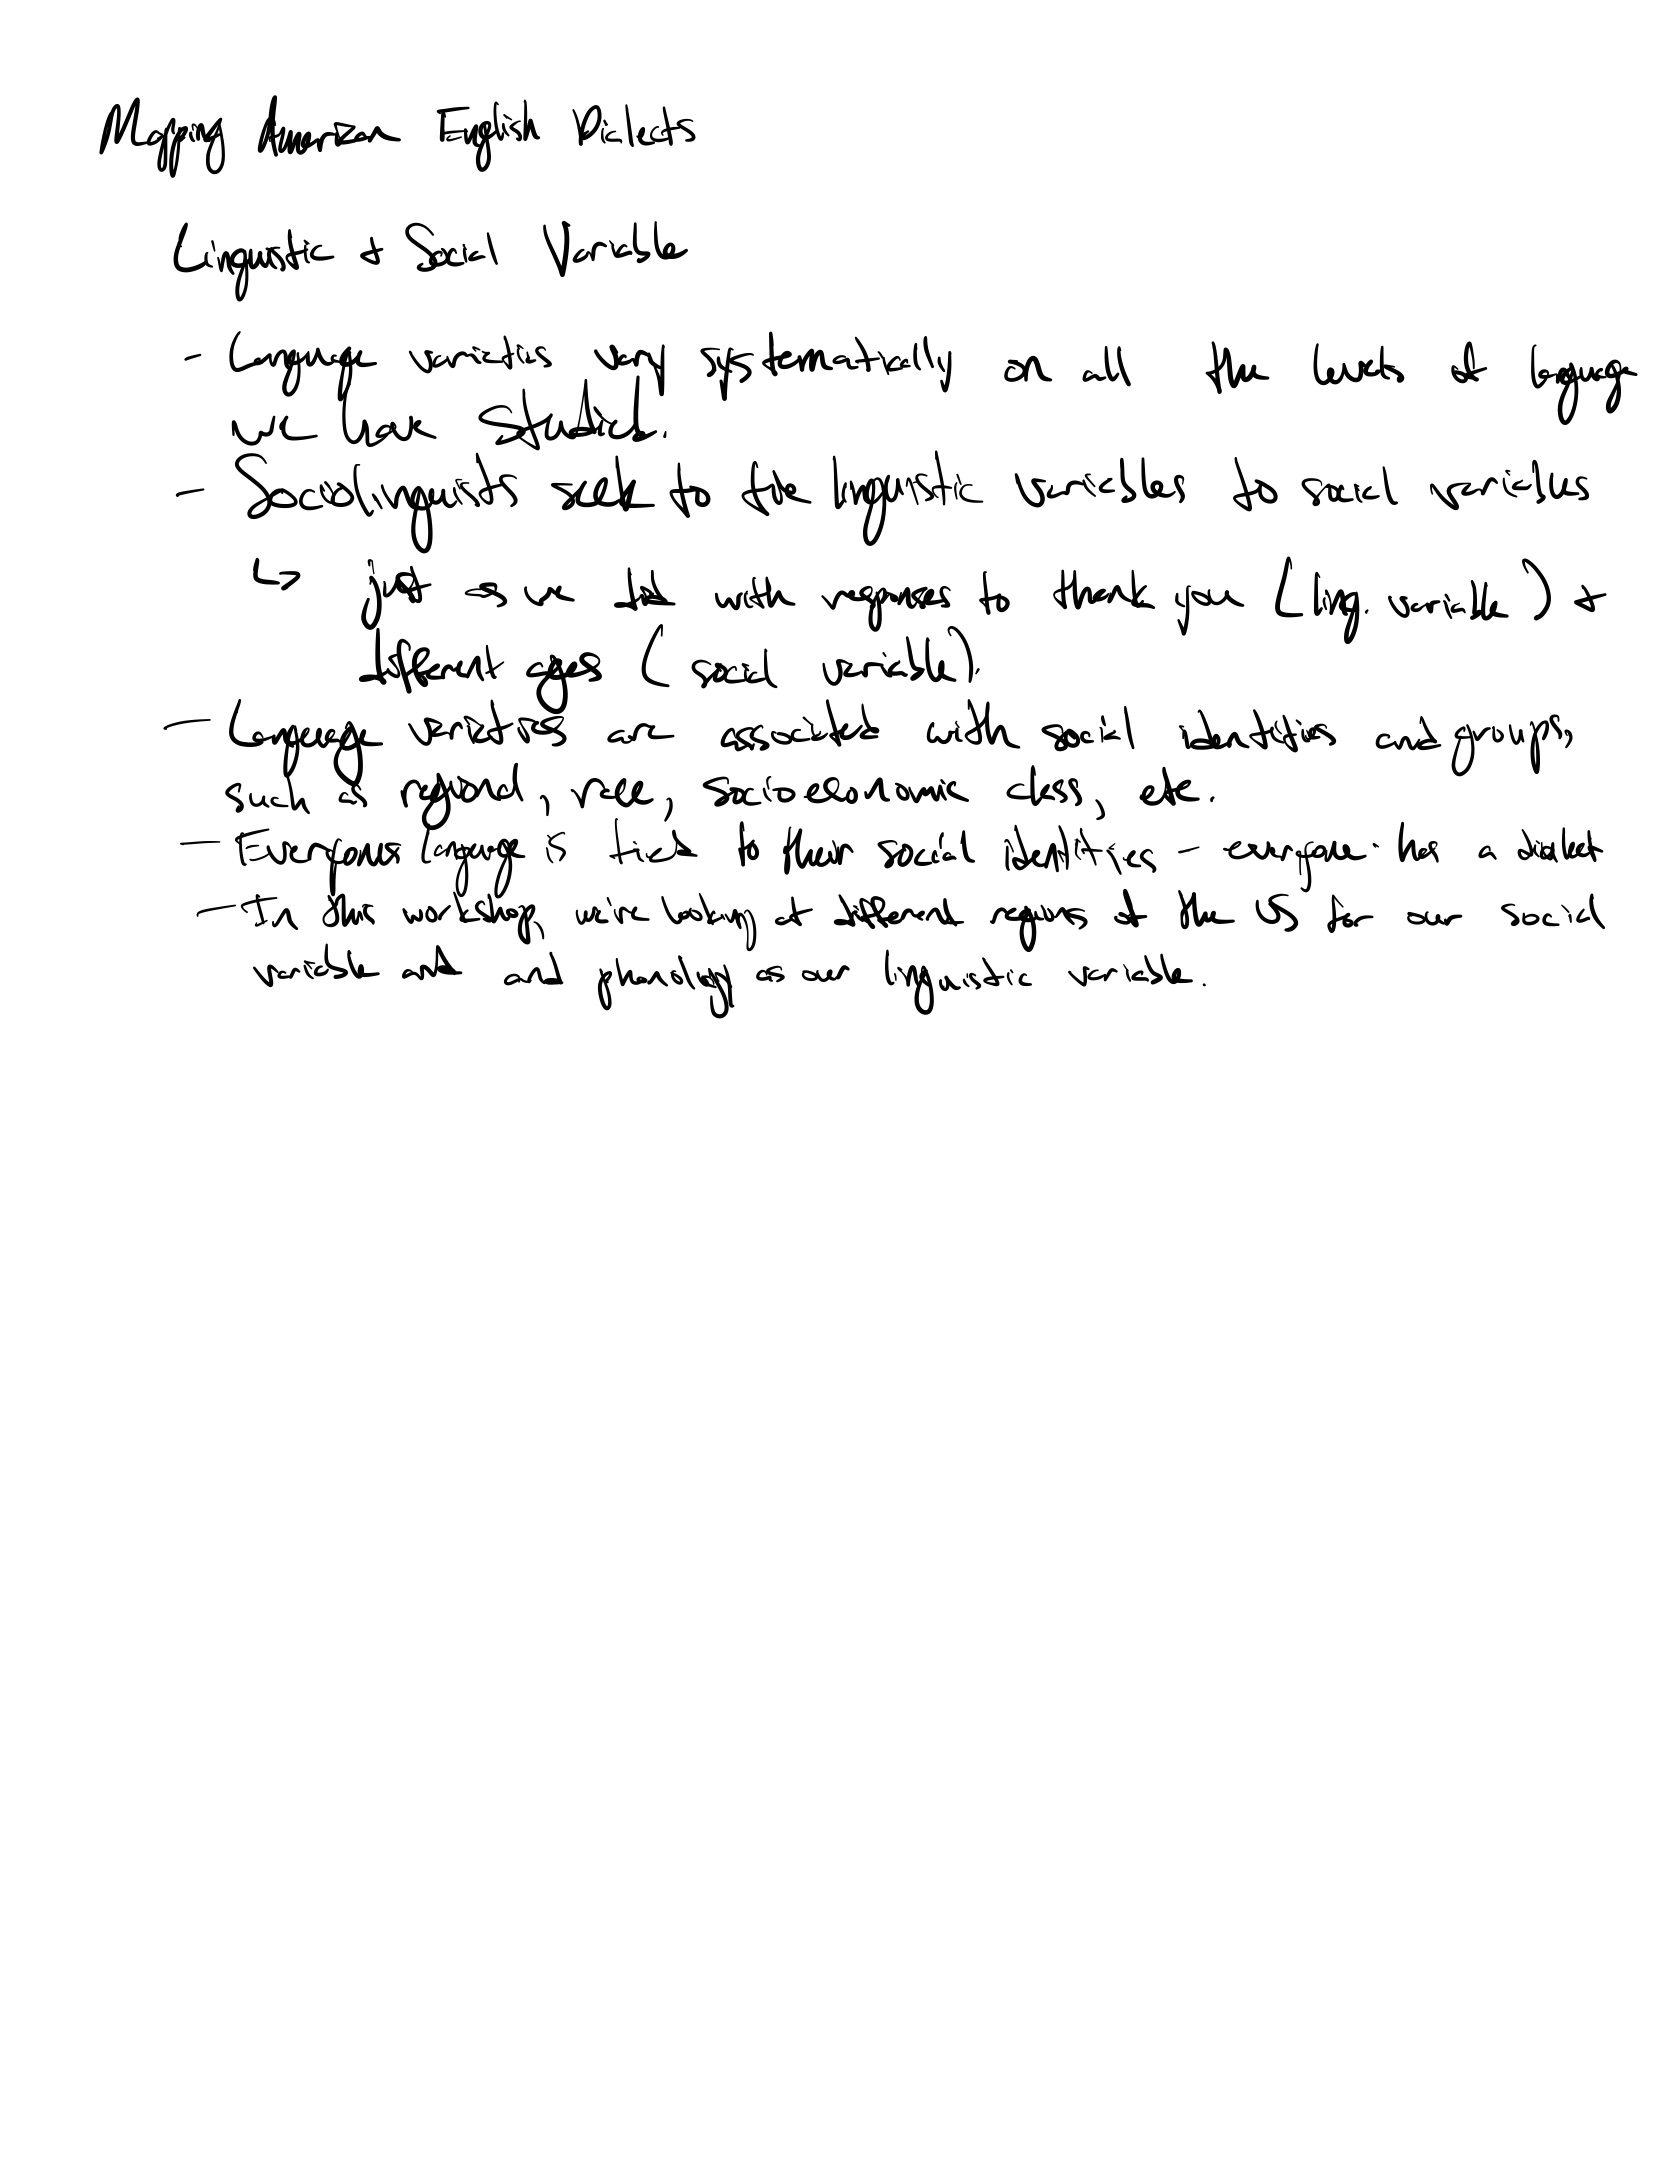 Mapping American English Dialects
Linguistic + Social Variable
- Language varieties vary systematically on all the levels of language
we have studied.
- Sociolinguists seek to tie linguistic variables to social variables
↳ just as we did with responses to thank you (ling. variable) +
different ages (social variable).
- Language varieties are associated with social identities and groups,
such as regional, race, socioeconomic class, etc.
- Everyones language is tied to their social identities - everyone has a dialect
- In this workshop, we're looking at different regions of the US for our social
variable and and phonology as our linguistic variable.